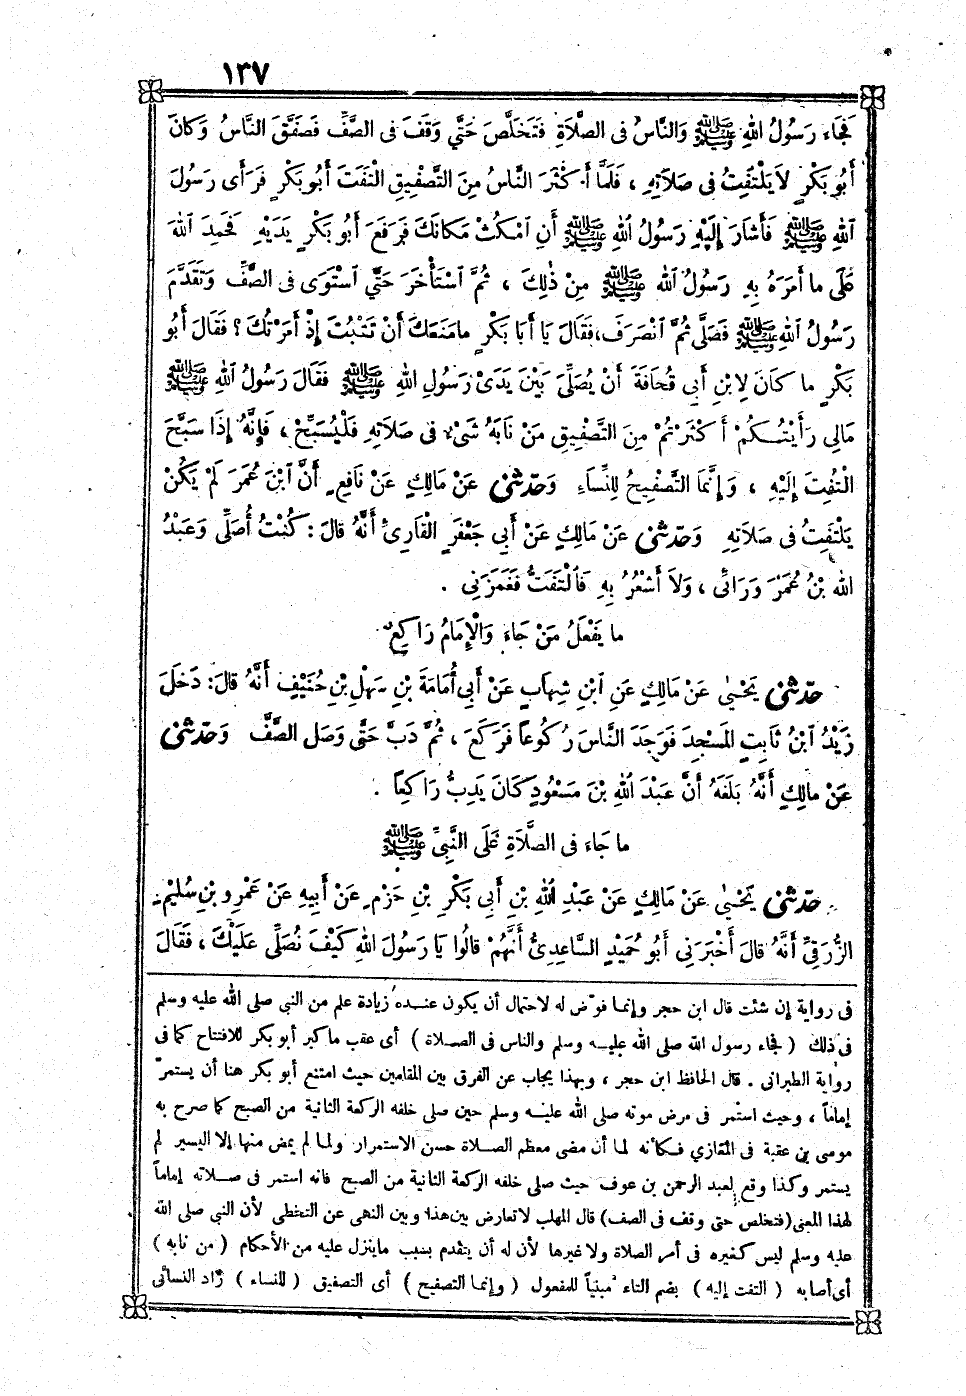 ١٣٧
فَجَاءَ رَسُولُ اللهِ ﷺ وَالنَّاسُ فى الصَّلَاةِ فَتَخَلَّصَ حَتَّى وَقَفَ فى الصَّفِّ فَصَفَّقَ النَّاسُ وَكَانَ
أَبُو بَكْرٍ لَا يَلْتَفِتُ فى صَلَاتِهِ ، فَلَمَّا أَكْثَرَ النَّاسُ مِنَ التَّصْفِيقِ الْتَفَتَ أَبُو بَكْرٍ فَرَأَى رَسُولَ
اللهِ ﷺ فَأَشَارَ إِلَيْهِ رَسُولُ اللهِ ﷺ أَنِ امْكُثْ مَكَانَكَ فَرَفَعَ أَبُو بَكْرٍ يَدَيْهِ فَحَمِدَ اللهَ
عَلَى ما أَمَرَهُ بِهِ رَسُولُ اللهِ ﷺ مِنْ ذٰلِكَ ، ثُمَّ اسْتَأْخَرَ حَتَّى اسْتَوَى فى الصَّفِّ وَتَقَدَّمَ
رَسُولُ اللهِ ﷺ فَصَلَّى ثُمَّ انْصَرَفَ، فَقَالَ يَا أَبَا بَكْرٍ مامَنَعَكَ أَنْ تَثْبُتَ إِذْ أَمَرْتُكَ ؟ فَقَالَ أَبُو
بَكْرٍ ما كَانَ لِابْنِ أَبِى قُحَافَةَ أَنْ يُصَلِّىَ بَيْنَ يَدَىْ رَسُولِ اللهِ ﷺ فَقَالَ رَسُولُ اللهِ ﷺ
مَالِى رَأَيْتُكُمْ أَكْثَرْتُمْ مِنَ التَّصْفِيقِ مَنْ نَابَهُ شَىْءٌ فى صَلَاتِهِ فَلْيُسَبِّحْ ، فَإِنَّهُ إِذَا سَبَّحَ
الْتُفِتَ إِلَيْهِ ، وَإِنَّمَا التَّصْفِيحُ لِلنِّسَاءِ وَحَدّثنى عَنْ مَالِكٍ عَنْ نَافِعٍ أَنَّ ابْنَ عُمَرَ لَمْ يَكُنْ
يَلْتَفِتُ فى صَلَاتِهِ وَحَدّثنى عَنْ مَالِكٍ عَنْ أَبِى جَعْفَرٍ الْقَارِئِ أَنَّهُ قَالَ : كُنْتُ أُصَلِّى وَعَبْدُ
اللهِ بْنُ عُمَرَ وَرَائِى ، وَلَا أَشْعُرُ بِهِ فَالْتَفَتُّ فَغَمَزَنِى .
ما يَفْعَلُ مَنْ جَاءَ وَالْإِمَامُ رَاكِعٌ
حَدّثنى يَحْيٰى عَنْ مَالِكٍ عَنِ ابْنِ شِهَابٍ عَنْ أَبِى أُمَامَةَ بْنِ سَهْلِ بْنِ حُنَيْفٍ أَنَّهُ قَالَ : دَخَلَ
زَيْدُ ابْنُ ثَابِتٍ المَسْجِدَ فَوَجَدَ النَّاسَ رُكُوعاً فَرَكَعَ ، ثُمَّ دَبَّ حَتَّى وَصَلَ الصَّفَّ وَحَدّثنى
عَنْ مَالِكٍ أَنَّهُ بَلَغَهُ أَنَّ عَبْدَ اللهِ بْنَ مَسْعُودٍ كَانَ يَدِبُّ رَاكِعاً .
ما جَاءَ فى الصَّلَاةِ عَلَى النَّبِىِّ ﷺ
حَدّثنى يَحْيٰى عَنْ مَالِكٍ عَنْ عَبْدِ اللهِ بْنِ أَبِى بَكْرِ بْنِ حَزْمٍ عَنْ أَبِيهِ عَنْ عَمْرِو بْنِ سُلَيْمٍ
الزُّرَقِىِّ أَنَّهُ قَالَ أَخْبَرَنِى أَبُو حُمَيْدٍ السَّاعِدِىُّ أَنَّهُمْ قَالُوا يَا رَسُولَ اللهِ كَيْفَ نُصَلِّى عَلَيْكَ ، فَقَالَ
فى رواية إن شئت قال ابن حجر وإنما فوّض له لاحتمال أن يكون عنده زيادة علم من النبى صلى الله عليه وسلم
فى ذلك ( فجاء رسول الله صلى الله عليه وسلم والناس فى الصلاة ) أى عقب ما كبر أبو بكر للافتتاح كما فى
رواية الطبرانى . قال الحافظ ابن حجر ، وبهذا يجاب عن الفرق بين المقامين حيث امتنع أبو بكر هنا أن يستمرّ
إماماً ، وحيث استمر فى مرض موته صلى الله عليه وسلم حين صلى خلفه الركعة الثانية من الصبح كما صرح به
موسى بن عقبة فى المغازي فكأنه لما أن مضى معظم الصلاة حسن الاستمرار ولما لم يمض منها إلا اليسير لم
يستمر وكذا وقع لعبد الرحمن بن عوف حيث صلى خلفه الركعة الثانية من الصبح فانه استمر فى صلاته إماماً
لهذا المعنى (فتخلص حتى وقف فى الصف) قال المهلب لاتعارض بين هذا وبين النهى عن التخطى لأن النبى صلى الله
عليه وسلم ليس كغيره فى أمر الصلاة ولا غيرها لأن له أن يتقدم بسبب ماينزل عليه من الأحكام ( من نابه )
أى أصابه ( التفت إليه ) بضم التاء مبنياً للمفعول ( وإنما التصفيح ) أى التصفيق ( للنساء ) زاد النسائى